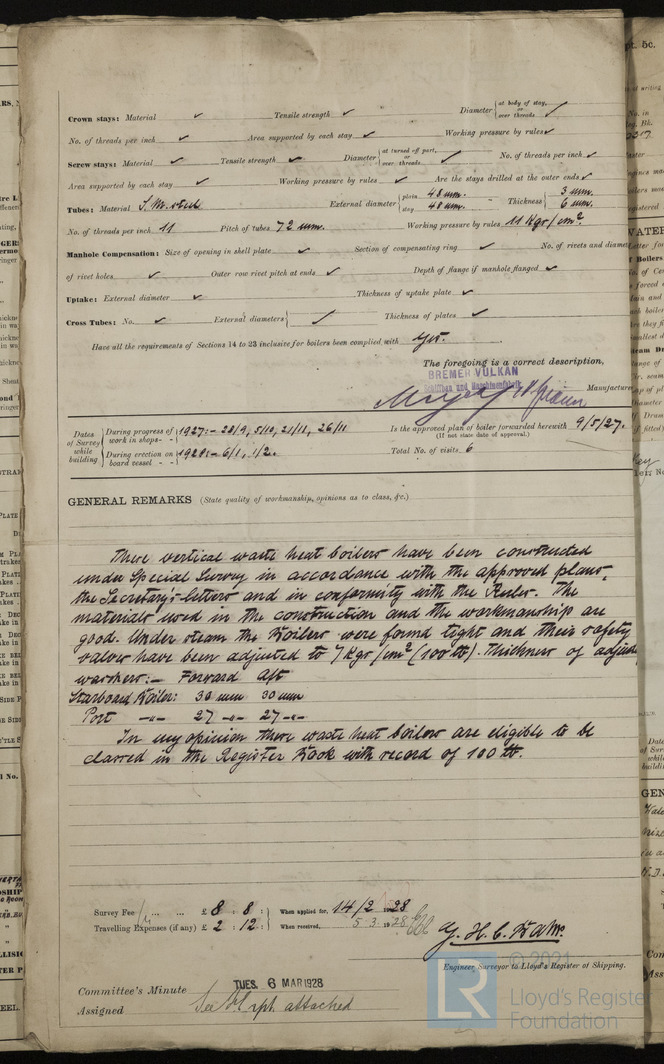 Crown stays: Material ✓ Tensile strength ✓ Diameter { at body of stay, or over threads ✓
No. of threads per inch ✓ Area supported by each stay ✓ Working pressure by rules ✓
Screw stays: Material ✓ Tensile strength ✓ Diameter { at turned off part, or over threads ✓ No. of threads per inch ✓
Area supported by each stay ✓ Working pressure by rules ✓ Are the stays drilled at the outer ends ✓
Tubes: Material S.M. steel External diameter { plain 48 mm. stay 48 mm. Thickness { 3 mm. 6 mm.
No. of threads per inch 11 Pitch of tubes 72 mm. Working pressure by rules 11 Kgr/cm².
Manhole Compensation: Size of opening in shell plate ✓ Section of compensating ring ✓ No. of rivets and diam
of rivet holes ✓ Outer row rivet pitch at ends ✓ Depth of flange if manhole flanged ✓
Uptake: External diameter ✓ Thickness of uptake plate ✓
Cross Tubes: No. ✓ External diameters { ✓ Thickness of plates ✓
Have all the requirements of Sections 14 to 23 inclusive for boilers been complied with yes.
The foregoing is a correct description,
BREMER VULKAN
Schiffbau und Maschinenfabrik
Manufacturer
Dates of Survey while building { During progress of work in shops - - } 1927:- 28/9, 5/10, 21/11, 26/11 Is the approved plan of boiler forwarded herewith 9/5/27.
(If not state date of approval.)
During erection on board vessel - - 1928:- 6/1, 1/2. Total No. of visits 6
GENERAL REMARKS (State quality of workmanship, opinions as to class, &c.)
These vertical waste heat boilers have been constructed
under Special Survey in accordance with the approved plans,
the Secretary's letters and in conformity with the Rules. The
materials used in the construction and the workmanship are
good. Under steam the Boilers were found tight and their safety
valves have been adjusted to 7 Kgr/cm² (100 lb). Thickness of
washers:- Forward Aft
Starboard Boiler: 30 mm 30 mm
Port -"- 27 -"- 27 -"-
In my opinion these waste heat boilers are eligible to be
classed in the Register Book with record of 100 lb.
Survey Fee ... ... £ 8 : 8 : When applied for, 14/2 1928
Travelling Expenses (if any) £ 2 : 12 : When received, 5 3 1928
Engineer Surveyor to Lloyd's Register of Shipping.
Committee's Minute TUES. 6 MAR 1928
Assigned See rpt. attached
© 2021
LR Lloyd's Register
Foundation